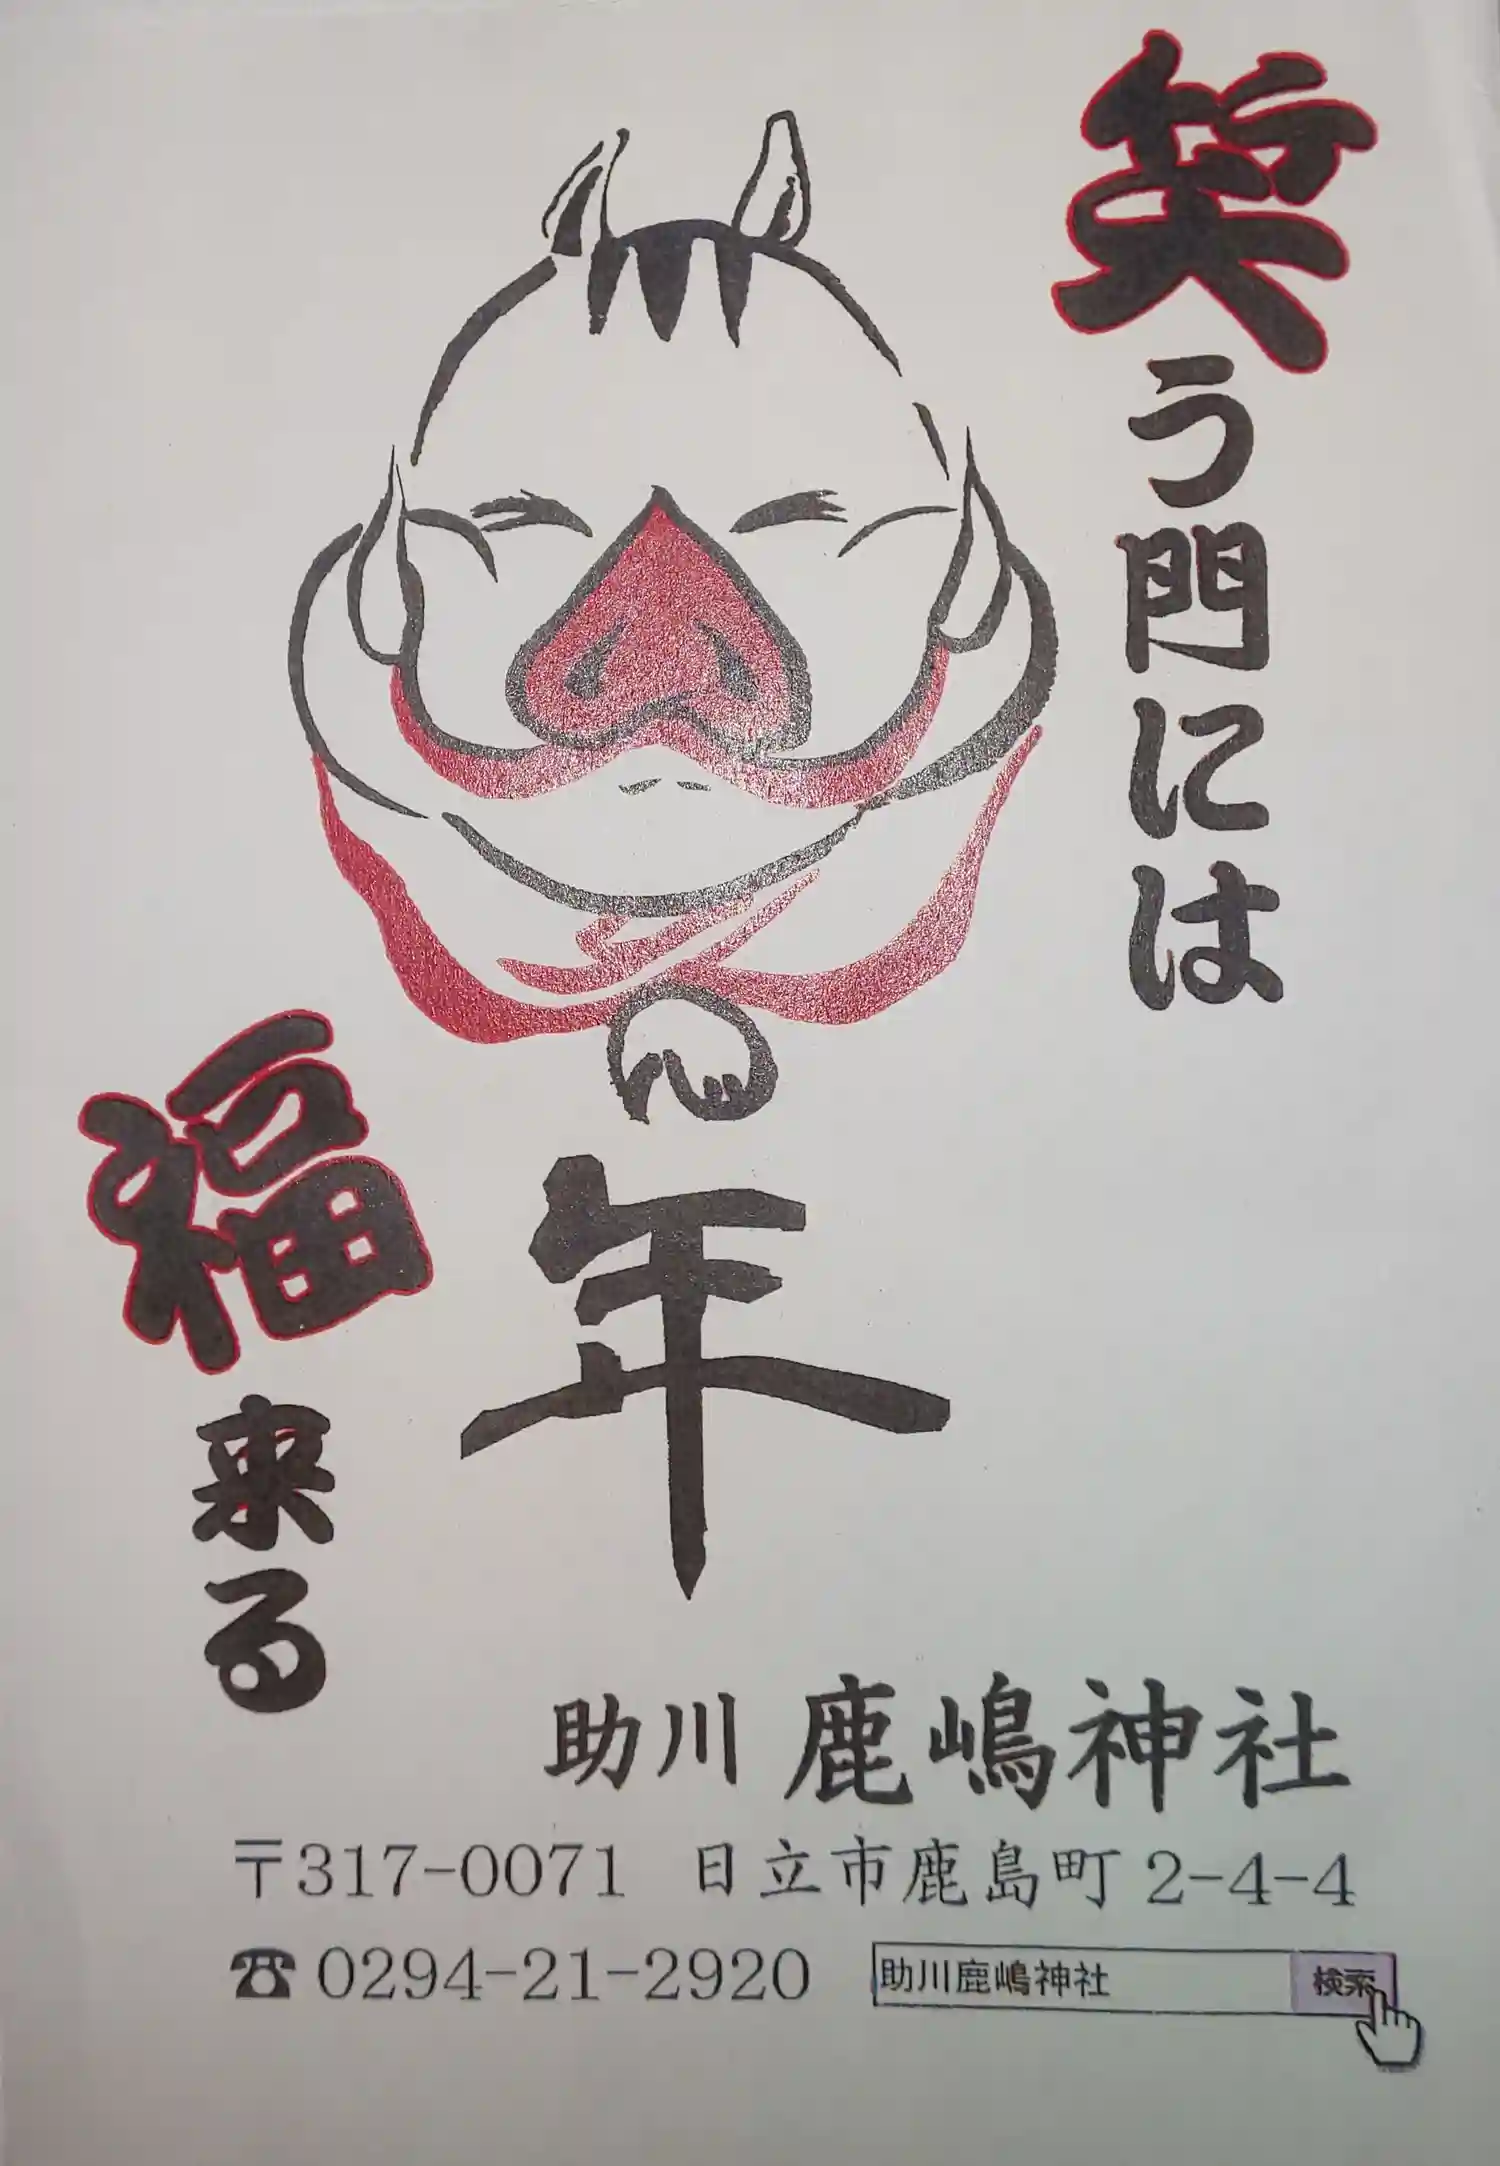 笑う門には
福来る
年
助川 鹿嶋神社
〒317-0071 日立市鹿島町2-4-4
☎0294-21-2920
助川鹿嶋神社 検索